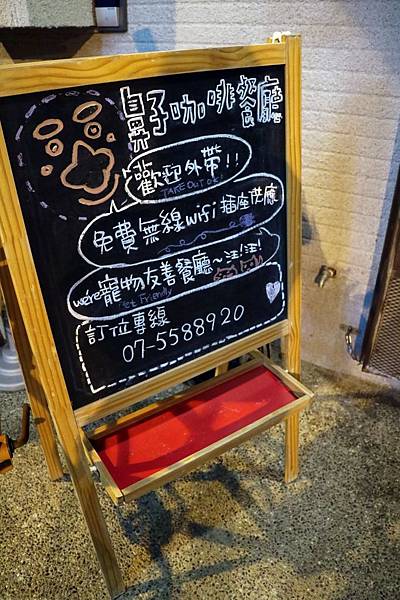 鼻子咖啡餐廳
歡迎外帶!!
TAKE OUT OK!
免費無線wifi插座供應
we're寵物友善餐廳~汪!汪!
Pet Friendly
訂位專線
07-5588920